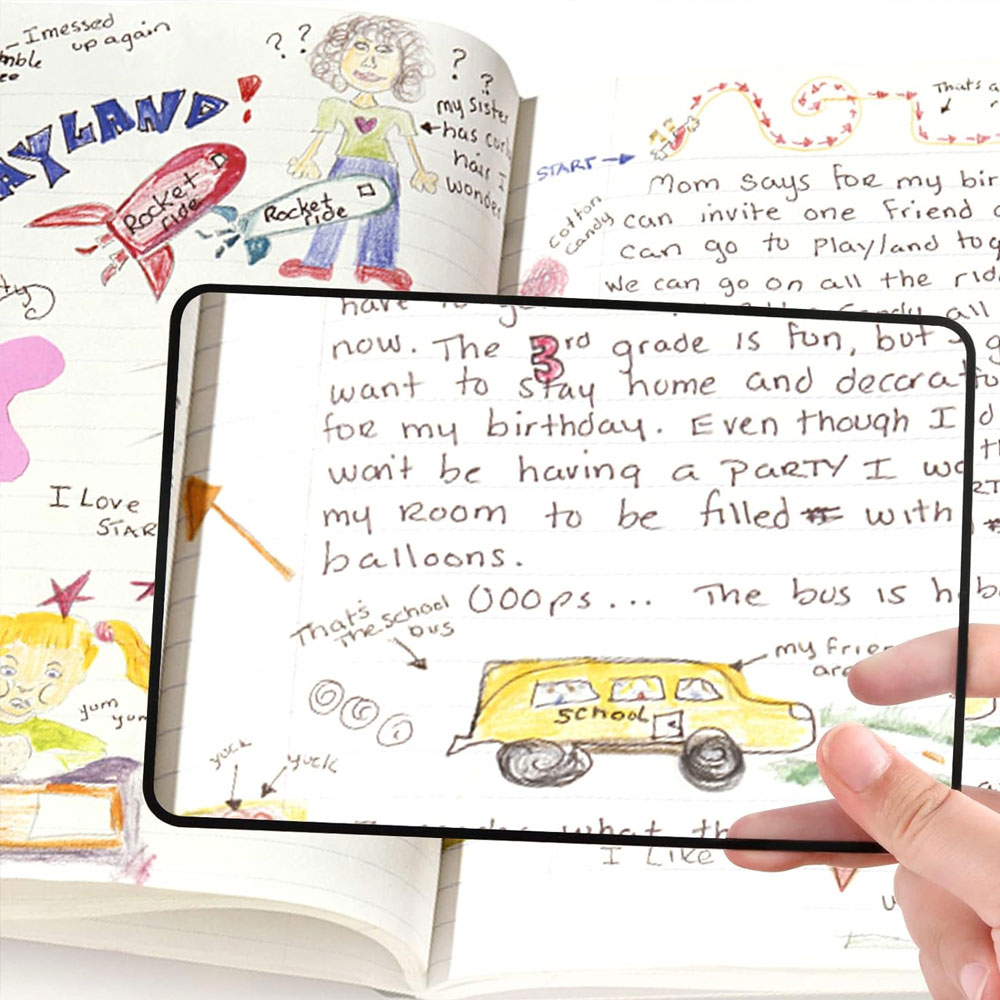 I messed
up again
AYLAND!
? ?
? ?
my sister
has
hair I
wonder
Rocket
ride
Rocket
ride
I Love
STAR
yum
yum
START
That's a
cotton
candy
Mom says for my bir
can invite one friend
can go to Playland tog
We can go on all the rid
all
have to
now. The 3rd grade is fun, but
want to stay home and decorat
for my birthday. Even though I
won't be having a PARTY I wo
my Room to be filled with
balloons.
OOOps... The bus is h
That's
The school
bus
my frie
are
school
yuck
yuck
what th
I Like